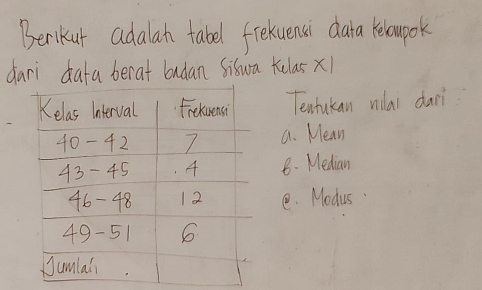 Berikut adalah tabel frekuensi data kelompok
dari data berat badan siswa kelas XI
Kelas Interval Frekuensi
40 - 42 7
43 - 45 4
46 - 48 12
49 - 51 6
Jumlah
Tentukan nilai dari :
a. Mean
b. Median
c. Modus